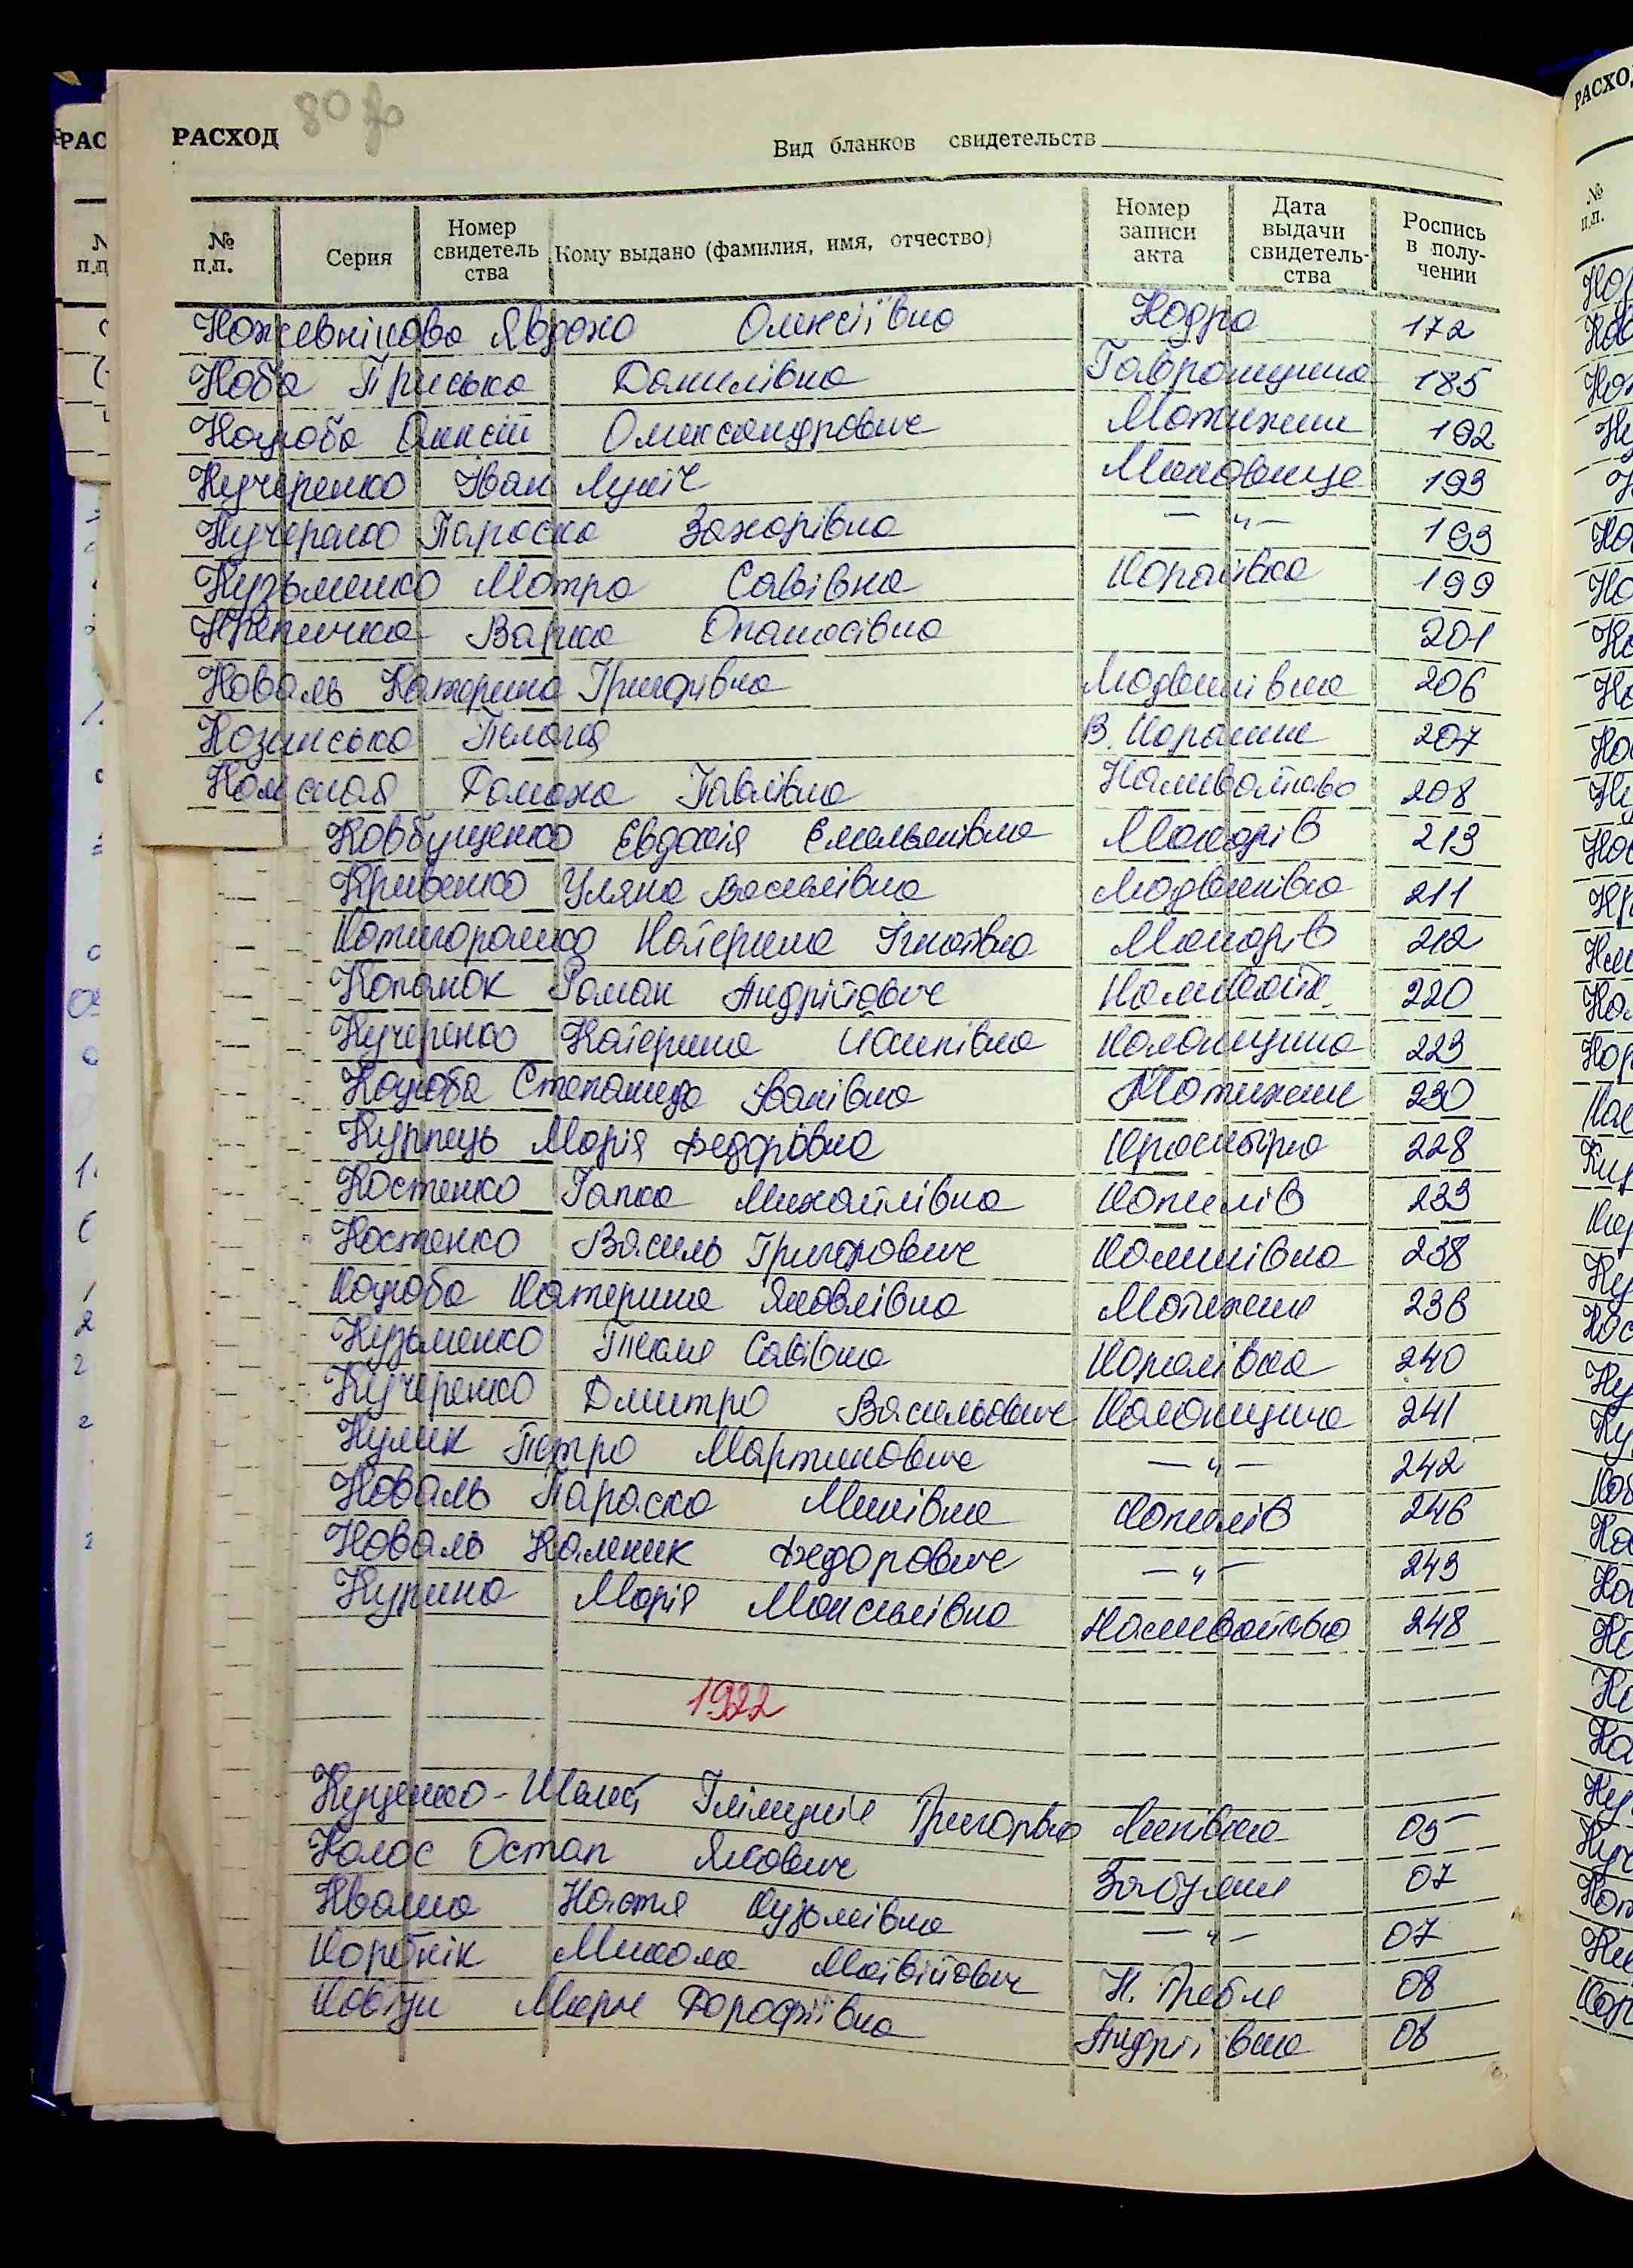 80 зв
РАСХОД
Вид бланков свидетельств
№ п.п. Серия Номер свидетель ства Кому выдано (фамилия, имя, отчество) Номер записи акта Дата выдачи свидетель- ства Роспись в полу- чении
Кожевнікова Явдоха Олексіївна Кодра 172
Коба Приська Данилівна Гавронщина 185
Коцюба Олексій Олександрович Мотижин 192
Кучеренко Іван Лукіч Маковище 193
Кучеренко Параска Захарівна —"— 193
Кузьменко Мотра Савівна Королівка 199
Крепичка Варка Опанасівна 201
Коваль Катерина Григорівна Людвинівка 206
Козинська Пелагея В. Карашин 207
Домаха Павлівна Наливайківка 208
Ковбущенко Євдокія Омельянівна Макарів 213
Кривенко Уляна Василівна Людвинівка 211
Котигораленко Катерина Ігнатівна Макарів 212
Копанок Роман Андрійович Наливайк. 220
Кучеренко Катерина Йосипівна Колонщина 223
Коцюба Степанида Іванівна Мотижин 230
Курпець Марія Федорівна Красногірка 228
Костенко Гапка Михайлівна Копилів 233
Костенко Василь Григорович Калинівка 238
Коцюба Катерина Яковлівна Мотижин 236
Кузьменко Текля Савівна Королівка 240
Кучеренко Дмитро Васильович Колонщина 241
Кулик Петро Мартинович —"— 242
Коваль Параска Минівна Копилів 246
Коваль Каленик Федорович —"— 243
Купина Марія Максимівна Наливайківка 248
1922
Куценко- Григорівна Липівка 05
Колос Остап Якович Забуяння 07
Квашa Настя Кузьмівна —"— 07
Коробнік Микола Матвійович Н. Гребля 08
Ковтун Марія Дорофіївна Андріївка 08